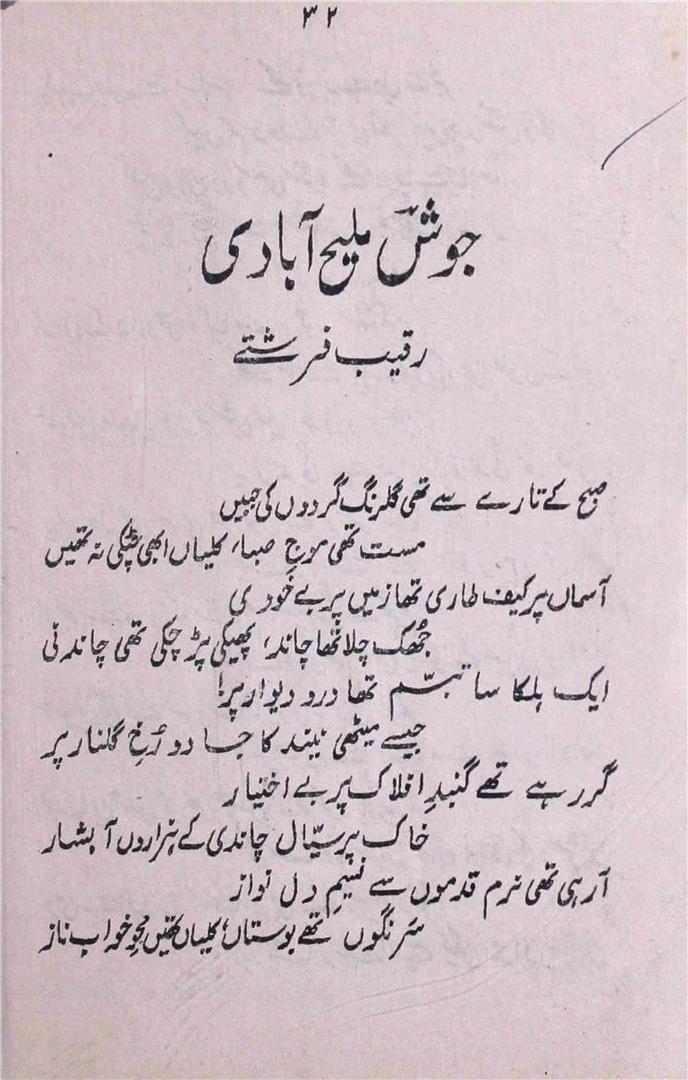 ۳۲
جوشؔ ملیح آبادی
رقیب فرشتے
صبح کے تارے سے تھی گلرنگ گردوں کی جبیں
مست تھی موجِ صبا، کلیاں ابھی چٹکی نہ تھیں
آسماں پر کیف طاری تھا زمیں پر بے خودی
جھک چلا تھا چاند، پھیکی پڑ چکی تھی چاندنی
ایک ہلکا سا تبسّم تھا در و دیوار پر!
جیسے میٹھی نیند کا جادو رُخِ گلنار پر
گر رہے تھے گنبدِ افلاک پر بے اختیار
خاک پر سیّال چاندی کے ہزاروں آبشار
آ رہی تھی نرم قدموں سے نسیمِ دل نواز
سَرنگوں تھے بوستاں، کلیاں تھیں محوِ خوابِ ناز